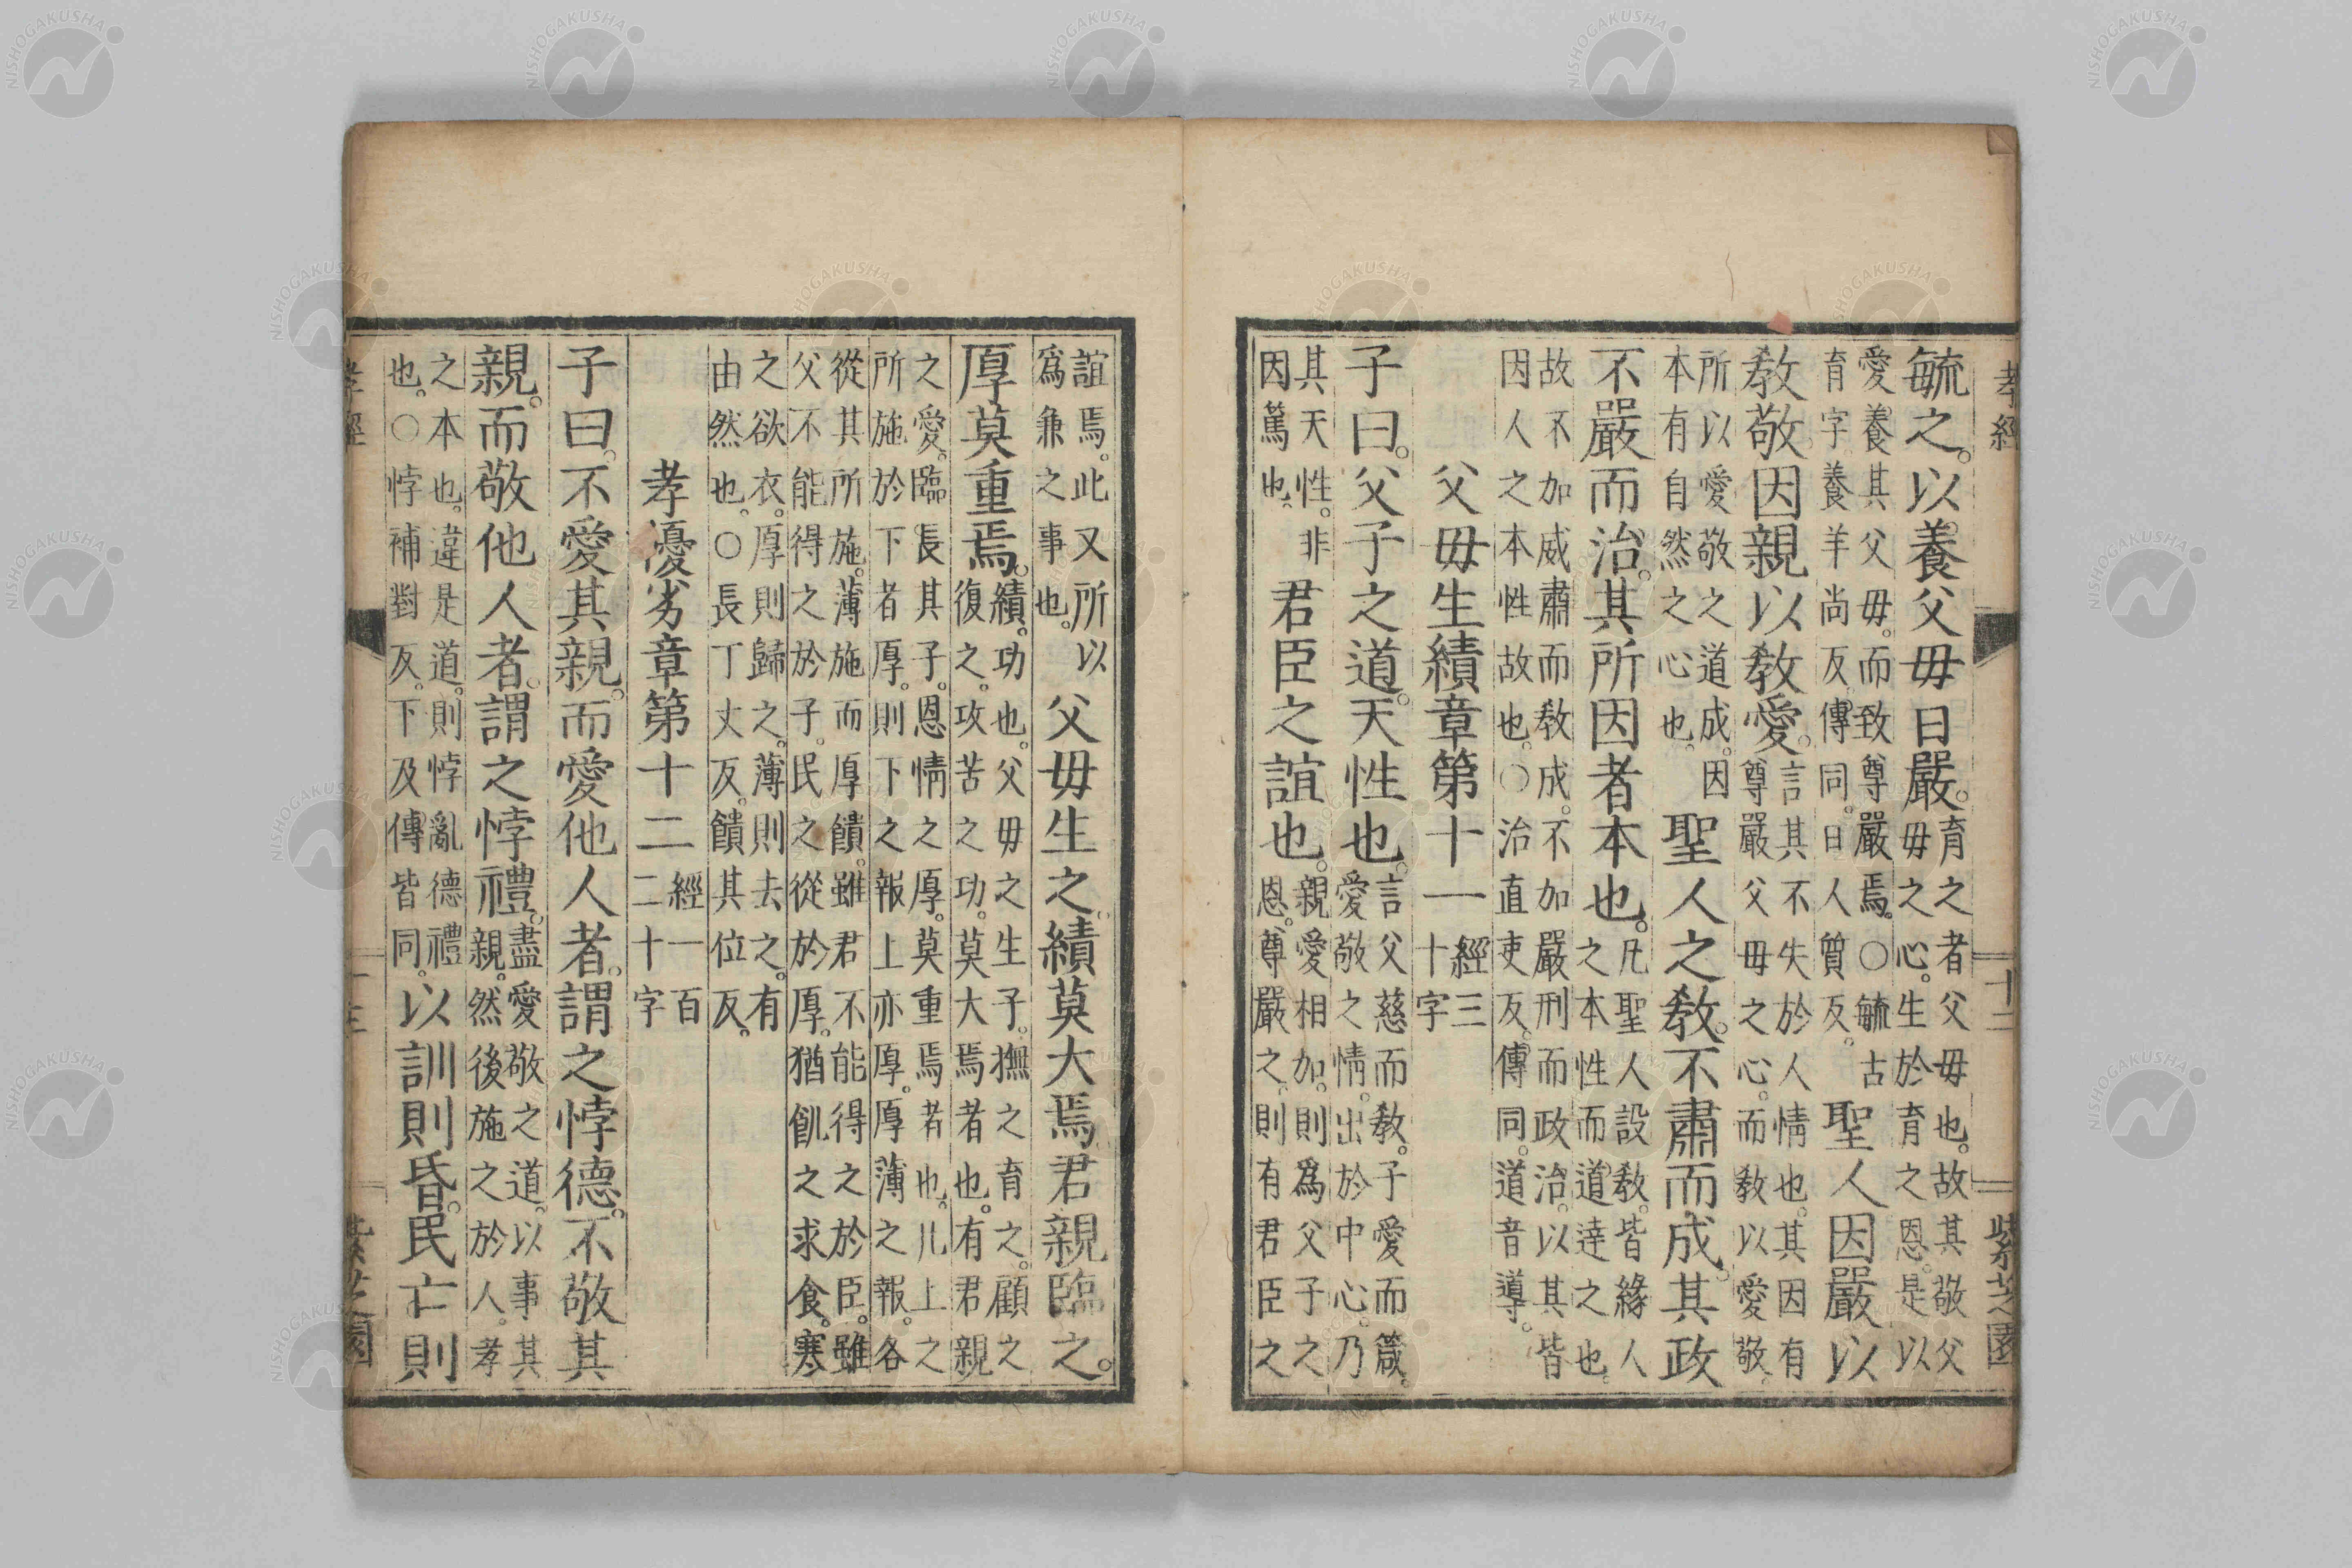 孝經 十二 紫芝園
毓之。以養父母日嚴。育之者父母也。故其敬父
母之心。生於育之恩。是以
愛養其父母。而致尊嚴焉。○毓古
育字養羊尚反。傳同。日人質反。聖人因嚴以
敎敬因親以敎愛。言其不失於人情也。其因有
尊嚴父母之心。而敎以愛敬。
所以愛敬之道成。因
本有自然之心也。聖人之敎。不肅而成。其政
不嚴而治。其所因者本也。凡聖人設敎。皆緣人
之本性而道達之也。
故不加威肅而敎成。不加嚴刑而政治。以其皆
因人之本性故也。○治直吏反。傳同。道音導。
父母生績章第十一 經三
十字
子曰。父子之道。天性也。言父慈而敎。子愛而箴。
愛敬之情。出於中心。乃
其天性。非
因篤也。君臣之誼也。親愛相加。則爲父子之
恩。尊嚴之。則有君臣之
誼焉。此又所以
爲兼之事也。父母生之。績莫大焉。君親臨之。
厚莫重焉。績。功也。父母之生子。撫之育之。顧之
復之。攻苦之功。莫大焉者也。有君親
之愛。臨長其子。恩情之厚。莫重焉者也。凡上之
所施於下者厚。則下之報上亦厚。厚薄之報。各
從其所施。薄施而厚饋。雖君不能得之於臣。雖
父不能得之於子。民之從於厚。猶飢之求食。寒
之欲衣。厚則歸之。薄則去之。有
由然也。○長丁丈反。饋其位反。
孝優劣章第十二 經一百
二十字
子曰。不愛其親。而愛他人者。謂之悖德。不敬其
親。而敬他人者。謂之悖禮。盡愛敬之道。以事其
親。然後施之於人。孝
之本也。違是道。則悖亂德禮
也。○悖補對反。下及傳皆同。以訓則昏。民亡則
孝經 十三 紫芝園